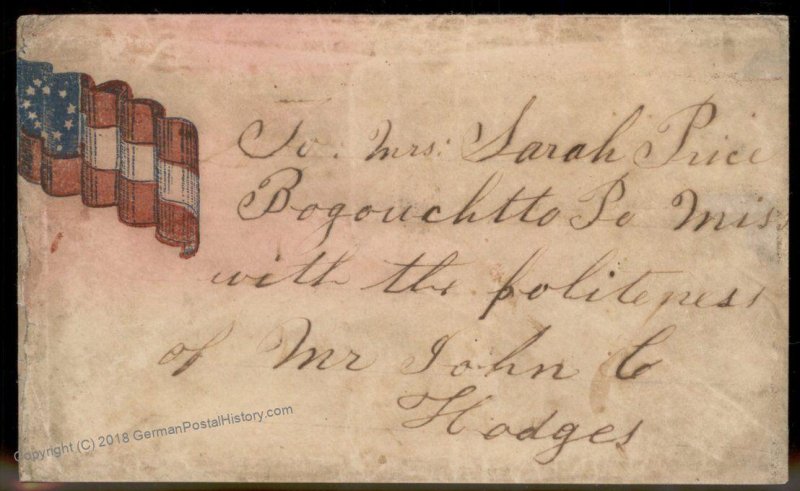 To. Mrs: Sarah Price
Bogouchtto Po Miss
with the politeness
of Mr John C
Hodges
Copyright (C) 2018 GermanPostalHistory.com